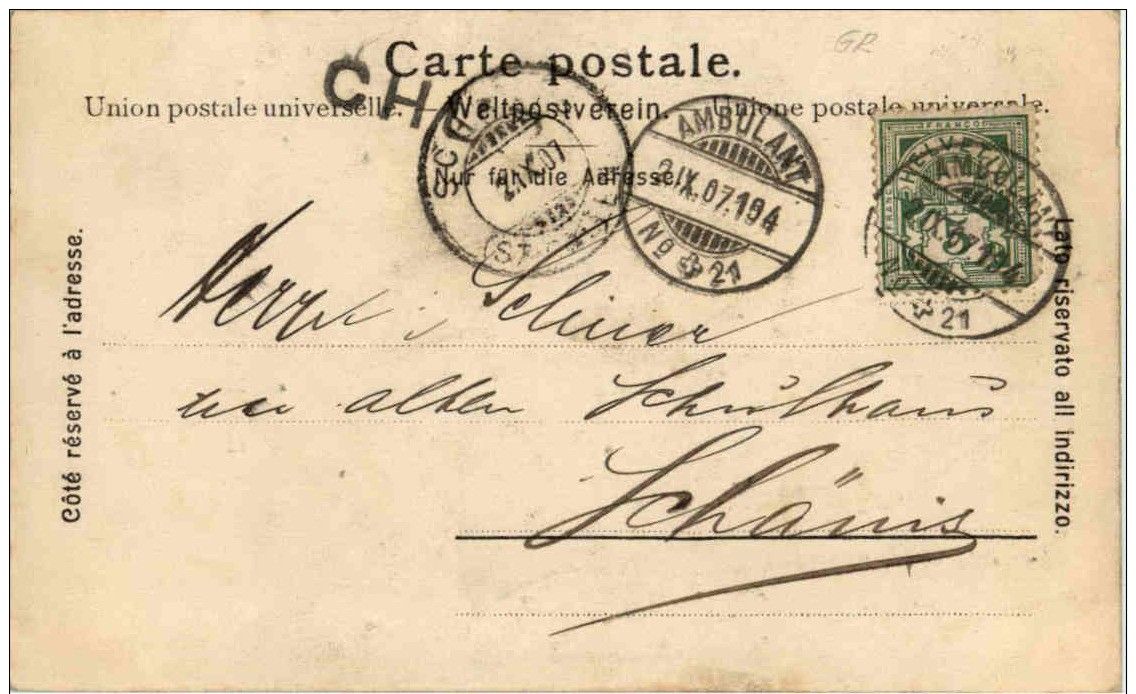 GR
Carte postale.
CH
Union postale universelle. — Weltpostverein. — Unione postale universale.
Nur für die Adresse.
SCH
2.IX.07
ST
AMBULANT
2.IX.07.19A
No 21
FRANCO
HELVETIA
5
AMBULANT
IX.07.19A
No 21
Côté réservé à l'adresse.
Lato riservato all indirizzo.
Scheuer
alten Schulhaus
Schänis